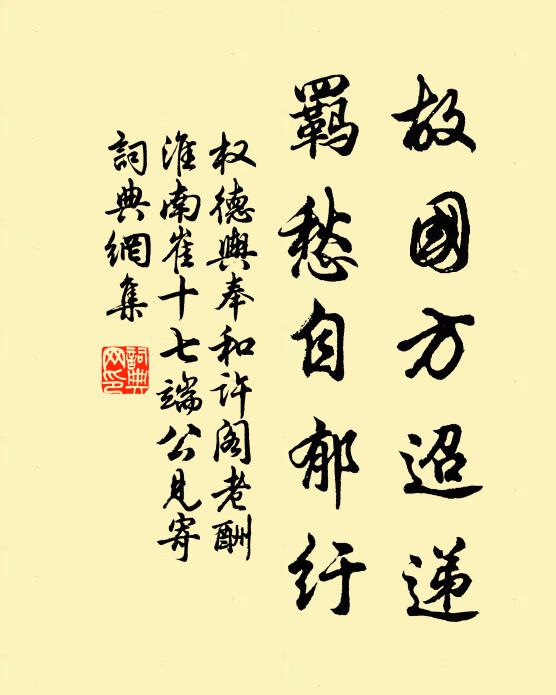 故國方迢遞
羈愁自郁紆
权德輿奉和许阁老酬
淮南崔十七端公見寄
詞典網集
詞典网印